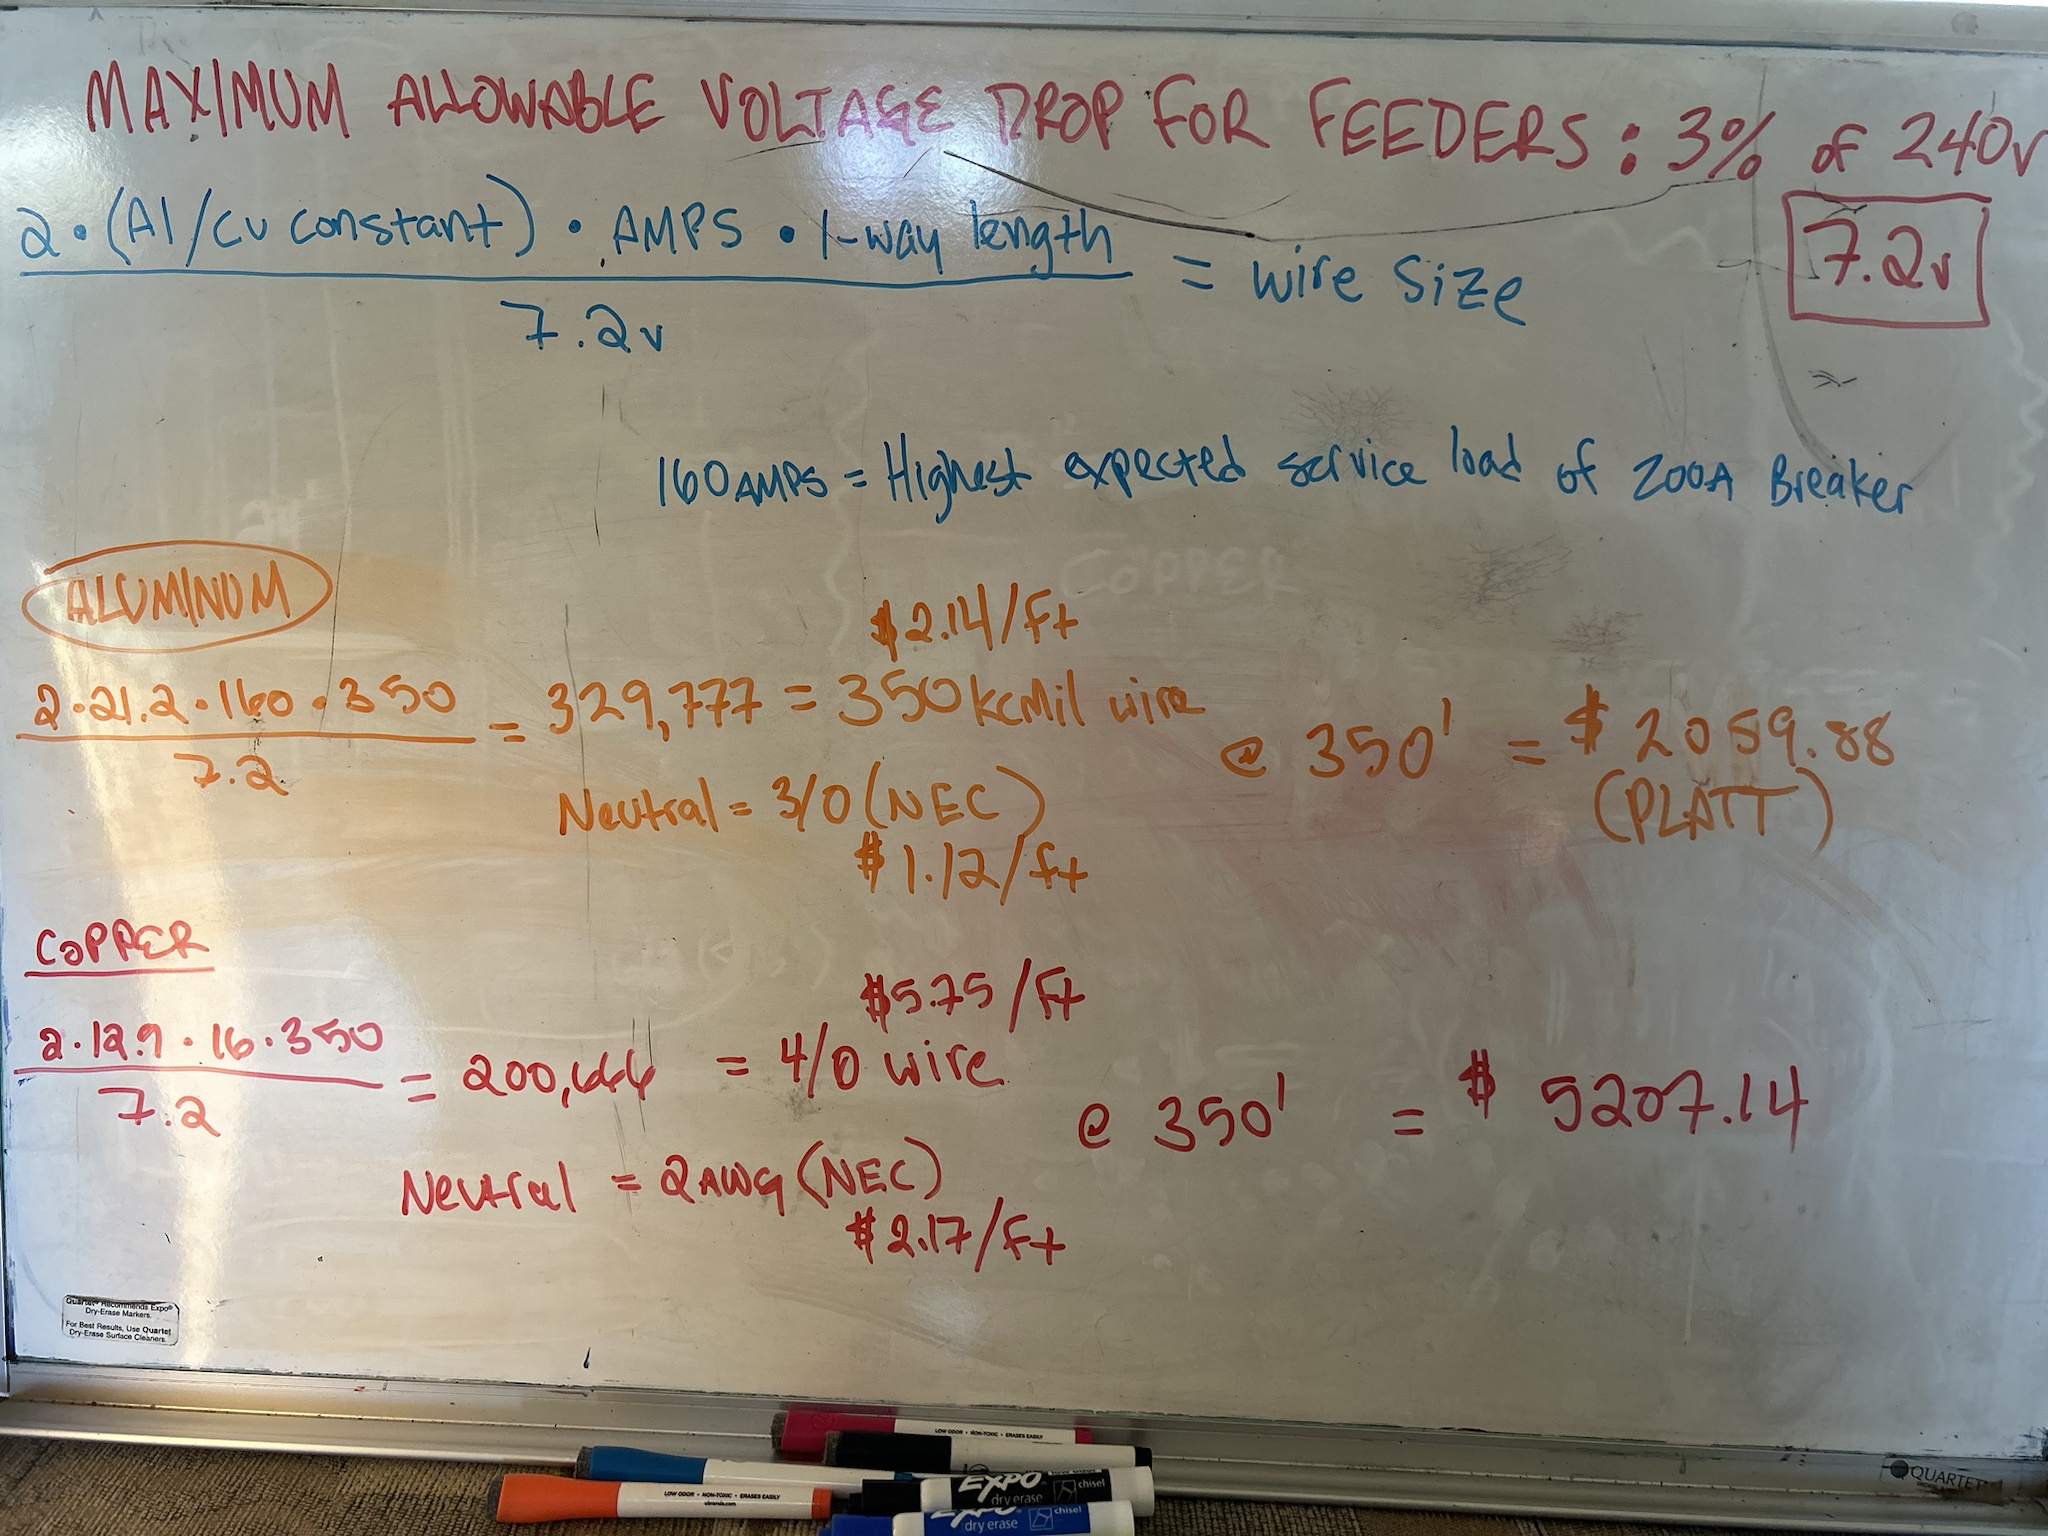 MAXIMUM ALLOWABLE VOLTAGE DROP FOR FEEDERS: 3% of 240v
7.2v
2 • (Al/cu constant) • AMPS • 1-way length
7.2v
= wire size
160 AMPS = Highest expected service load of 200A Breaker
COPPER
ALUMINUM
$2.14/ft
2•21.2•160•350
7.2
= 329,777 = 350 kcmil wire
@ 350' = $2059.88
(PLATT)
Neutral = 3/0 (NEC)
$1.12/ft
COPPER
$5.75/ft
2•12.9•16•350
7.2
= 200,666 = 4/0 wire
@ 350' = $5207.14
Neutral = 2 AWG (NEC)
$2.17/ft
Quartet® Recommends Expo®
Dry-Erase Markers.
For Best Results, Use Quartet
Dry-Erase Surface Cleaners.
QUARTET
LOW ODOR • NON-TOXIC • ERASES EASILY
LOW ODOR • NON-TOXIC • ERASES EASILY
ubrands.com
EXPO
dry erase
chisel
dry erase
chisel